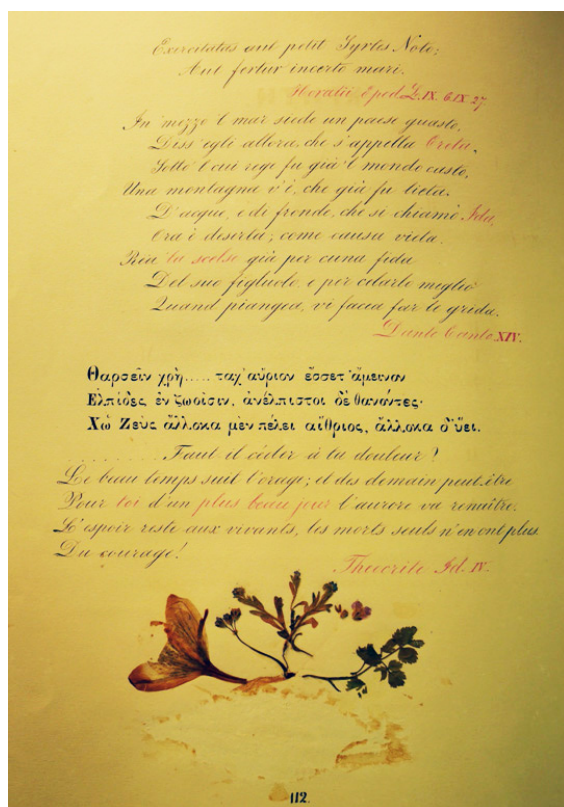 Exercitatas aut petit Syrtes Noto;
Aut fertur incerto mari.
Horatii, Epod L. IX. 6.IX 27
In mezzo 'l mar siede un paese guasto,
Diss'egli allora, che s'appella Creta,
Sotto 'l cui rege fu già 'l mondo casto,
Una montagna v'è, che già fu lieta
D'acque, e di fronde, che si chiamò Ida,
Ora è deserta; come causa vieta.
Rea la scelse già per cuna fida
Del suo figliuolo, e per celarlo miglio'
Quand piangea, vi facia far le grida.
Dante Canto XIV.
Θαρσεῖν χρὴ..... ταχ' αὔριον ἔσσετ' ἄμεινον
Ελπίδες ἐν ζωοῖσιν, ἀνέλπιστοι δὲ θανόντες·
Χὠ Ζεὺς ἄλλοκα μὲν πέλει αἴθριος, ἄλλοκα δ'ὕει.
......... Faut il céder à ta douleur?
Le beau temps suit l'orage; et dès demain peut.être
Pour toi d'un plus beau jour l'aurore va renaître.
L'espoir reste aux vivants, les morts seuls n'en ont plus
Du courage!
Théocrite Id. IV.
112.